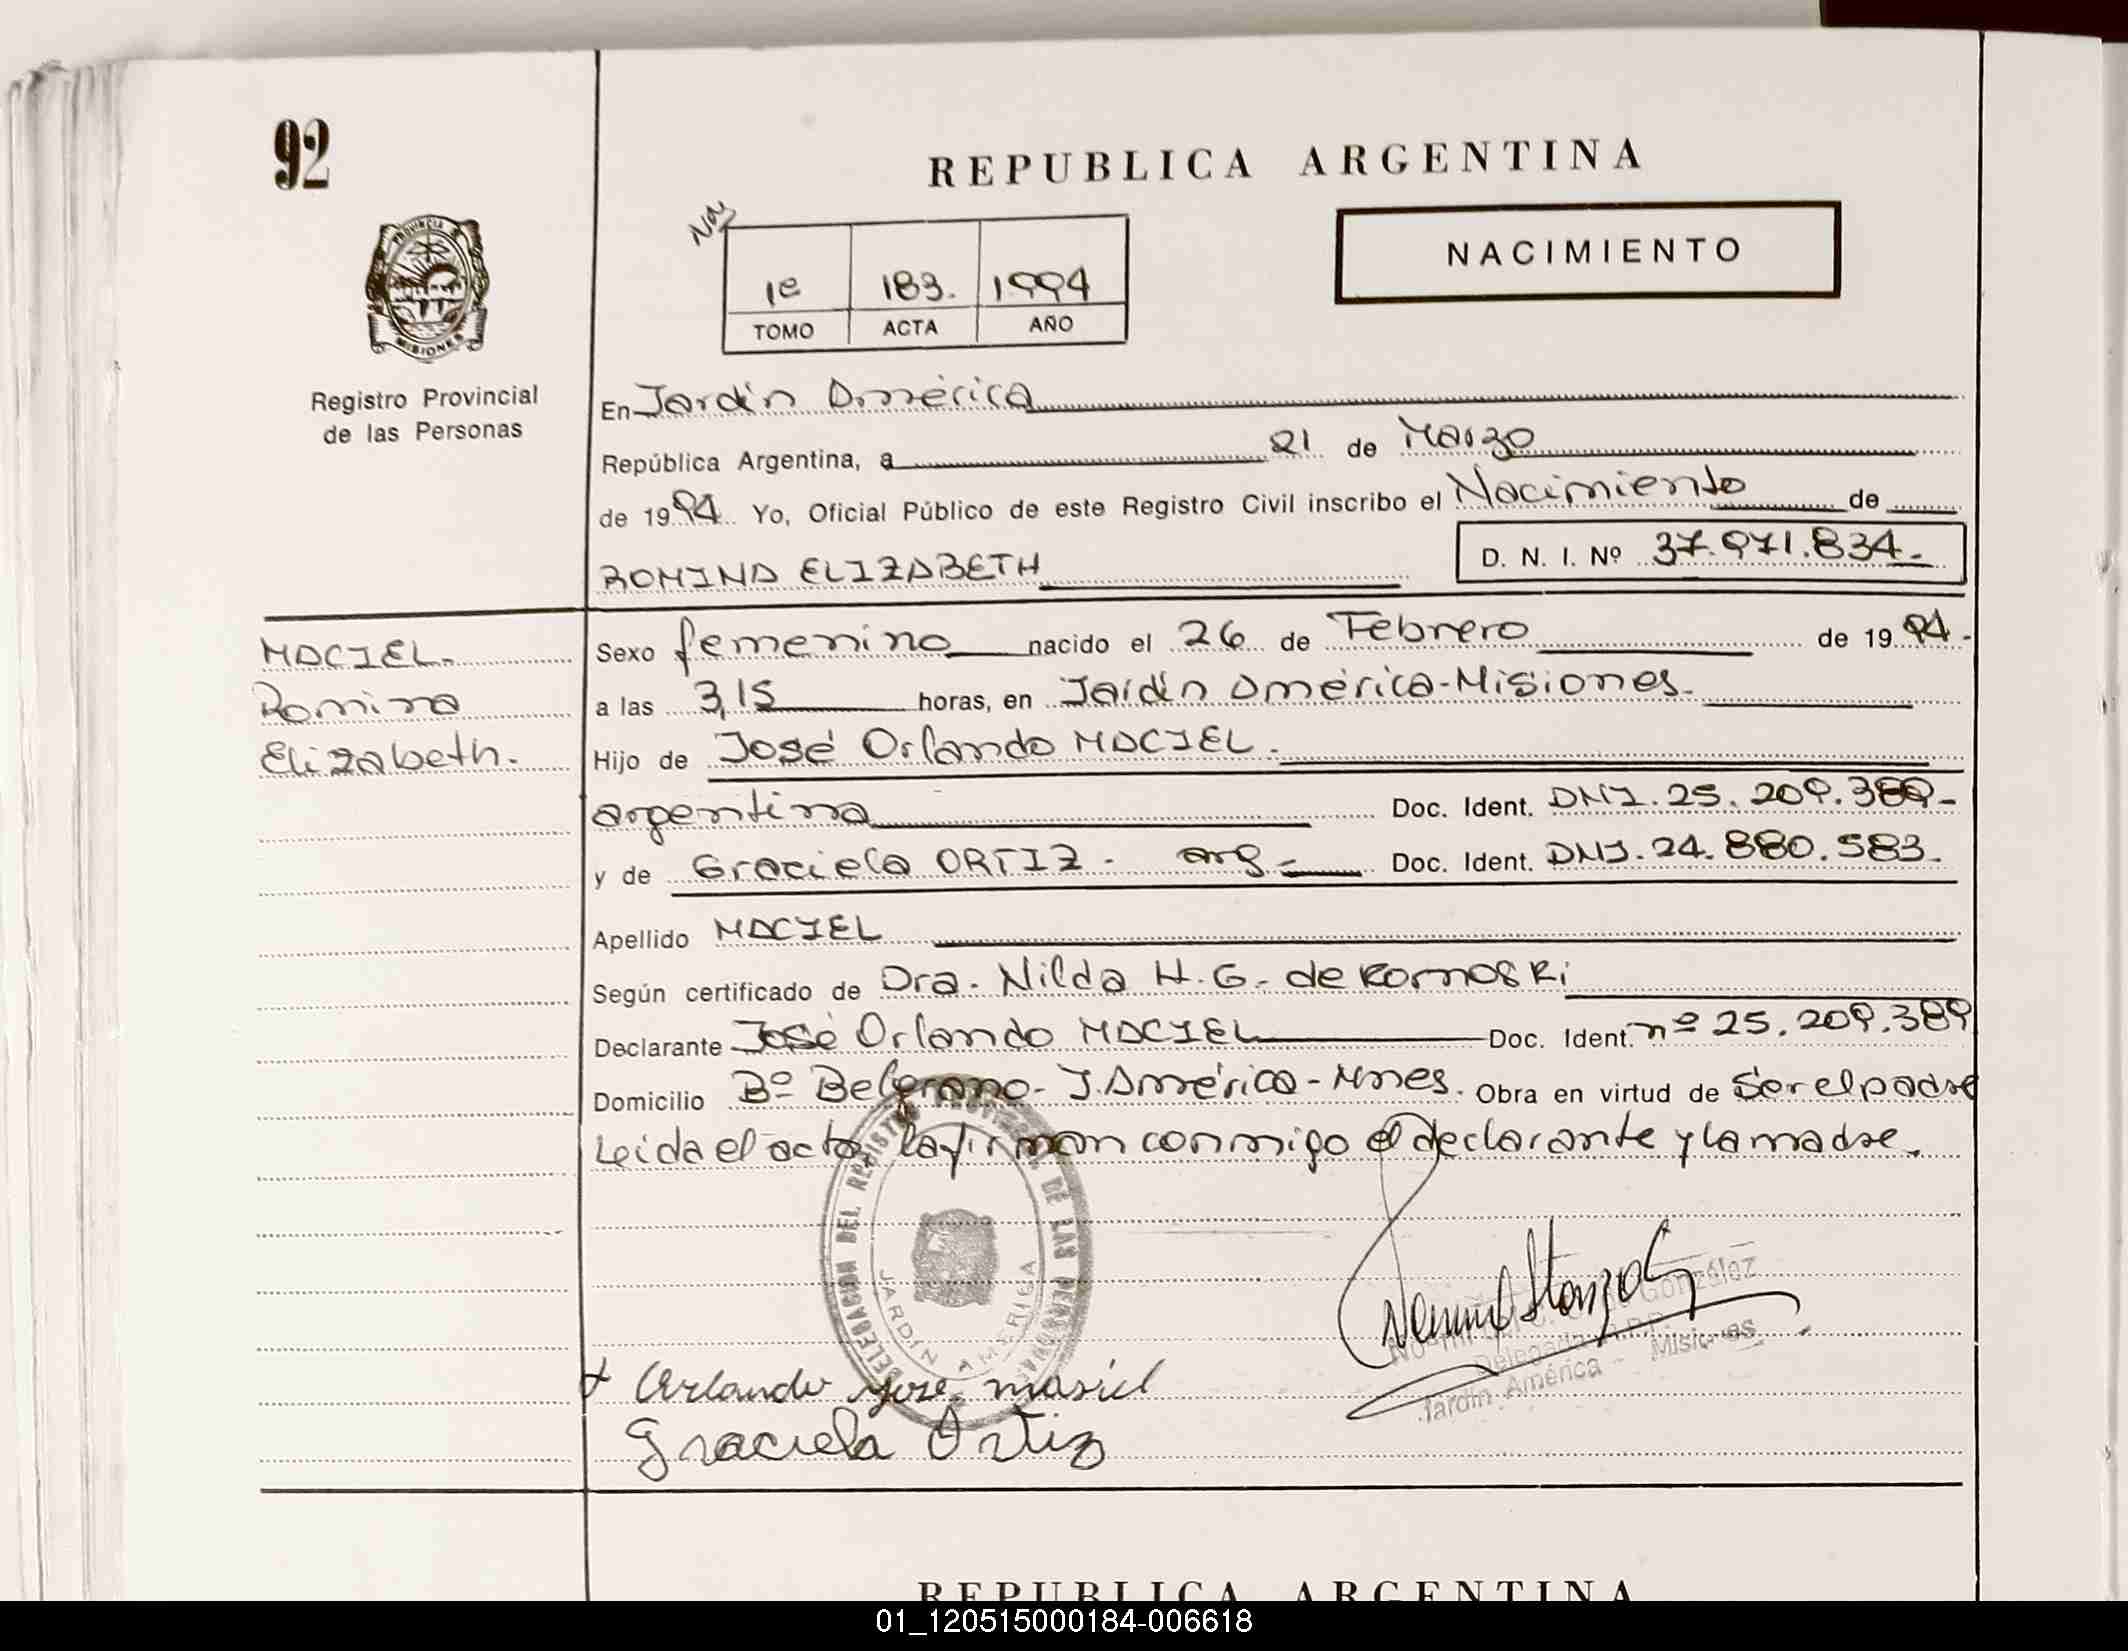 92
REPUBLICA ARGENTINA
NACIMIENTO
1e 183. 1994
TOMO ACTA AÑO
PROVINCIA
MISIONES
Registro Provincial
de las Personas
En Jardín América
República Argentina, a 21 de Marzo
de 1994. Yo, Oficial Público de este Registro Civil inscribo el Nacimiento de
ROMINA ELIZABETH D. N. I. Nº 37.971.834.-
MACIEL.
Romina
Elizabeth.
Sexo femenino nacido el 26 de Febrero de 1994.-
a las 3,15 horas, en Jardín América-Misiones.
Hijo de José Orlando MACIEL.
argentina Doc. Ident. DNI. 25. 209. 389-
y de Graciela ORTIZ - arg - Doc. Ident. DNI. 24. 880. 583.
Apellido MACIEL
Según certificado de Dra. Nilda H. G. de
Declarante José Orlando MACIEL Doc. Ident. nº 25. 209. 389
Domicilio Bº Belgrano- J. América - Mnes. Obra en virtud de Ser el padre
Leida el acta, la firman conmigo el declarante y la madre.
DELEGACION DEL REGISTRO DE LAS PERSONAS
JARDÍN AMERICA
González
Delegada R.P.P.
Jardín América - Misiones
Orlando jose masiel
Graciela Ortiz
REPUBLICA ARGENTINA
01_120515000184-006618